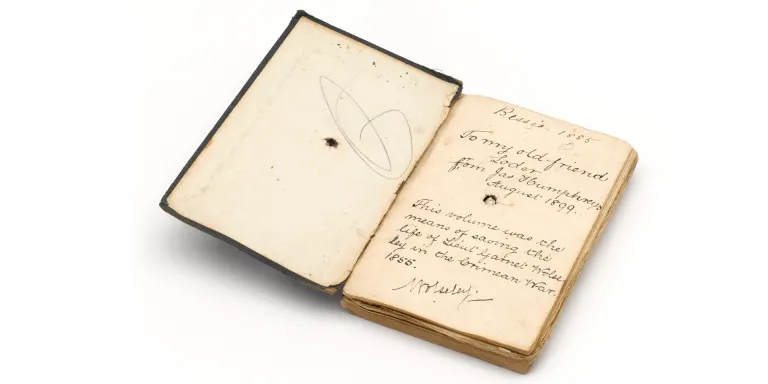 Bessie. 1885
To my old friend
Loder
from Jas Humphreys
August 1899.
This volume was the
means of saving the
life of Lieut Garnet Wolse
ley in the Crimean War.
1855.
Wolseley.